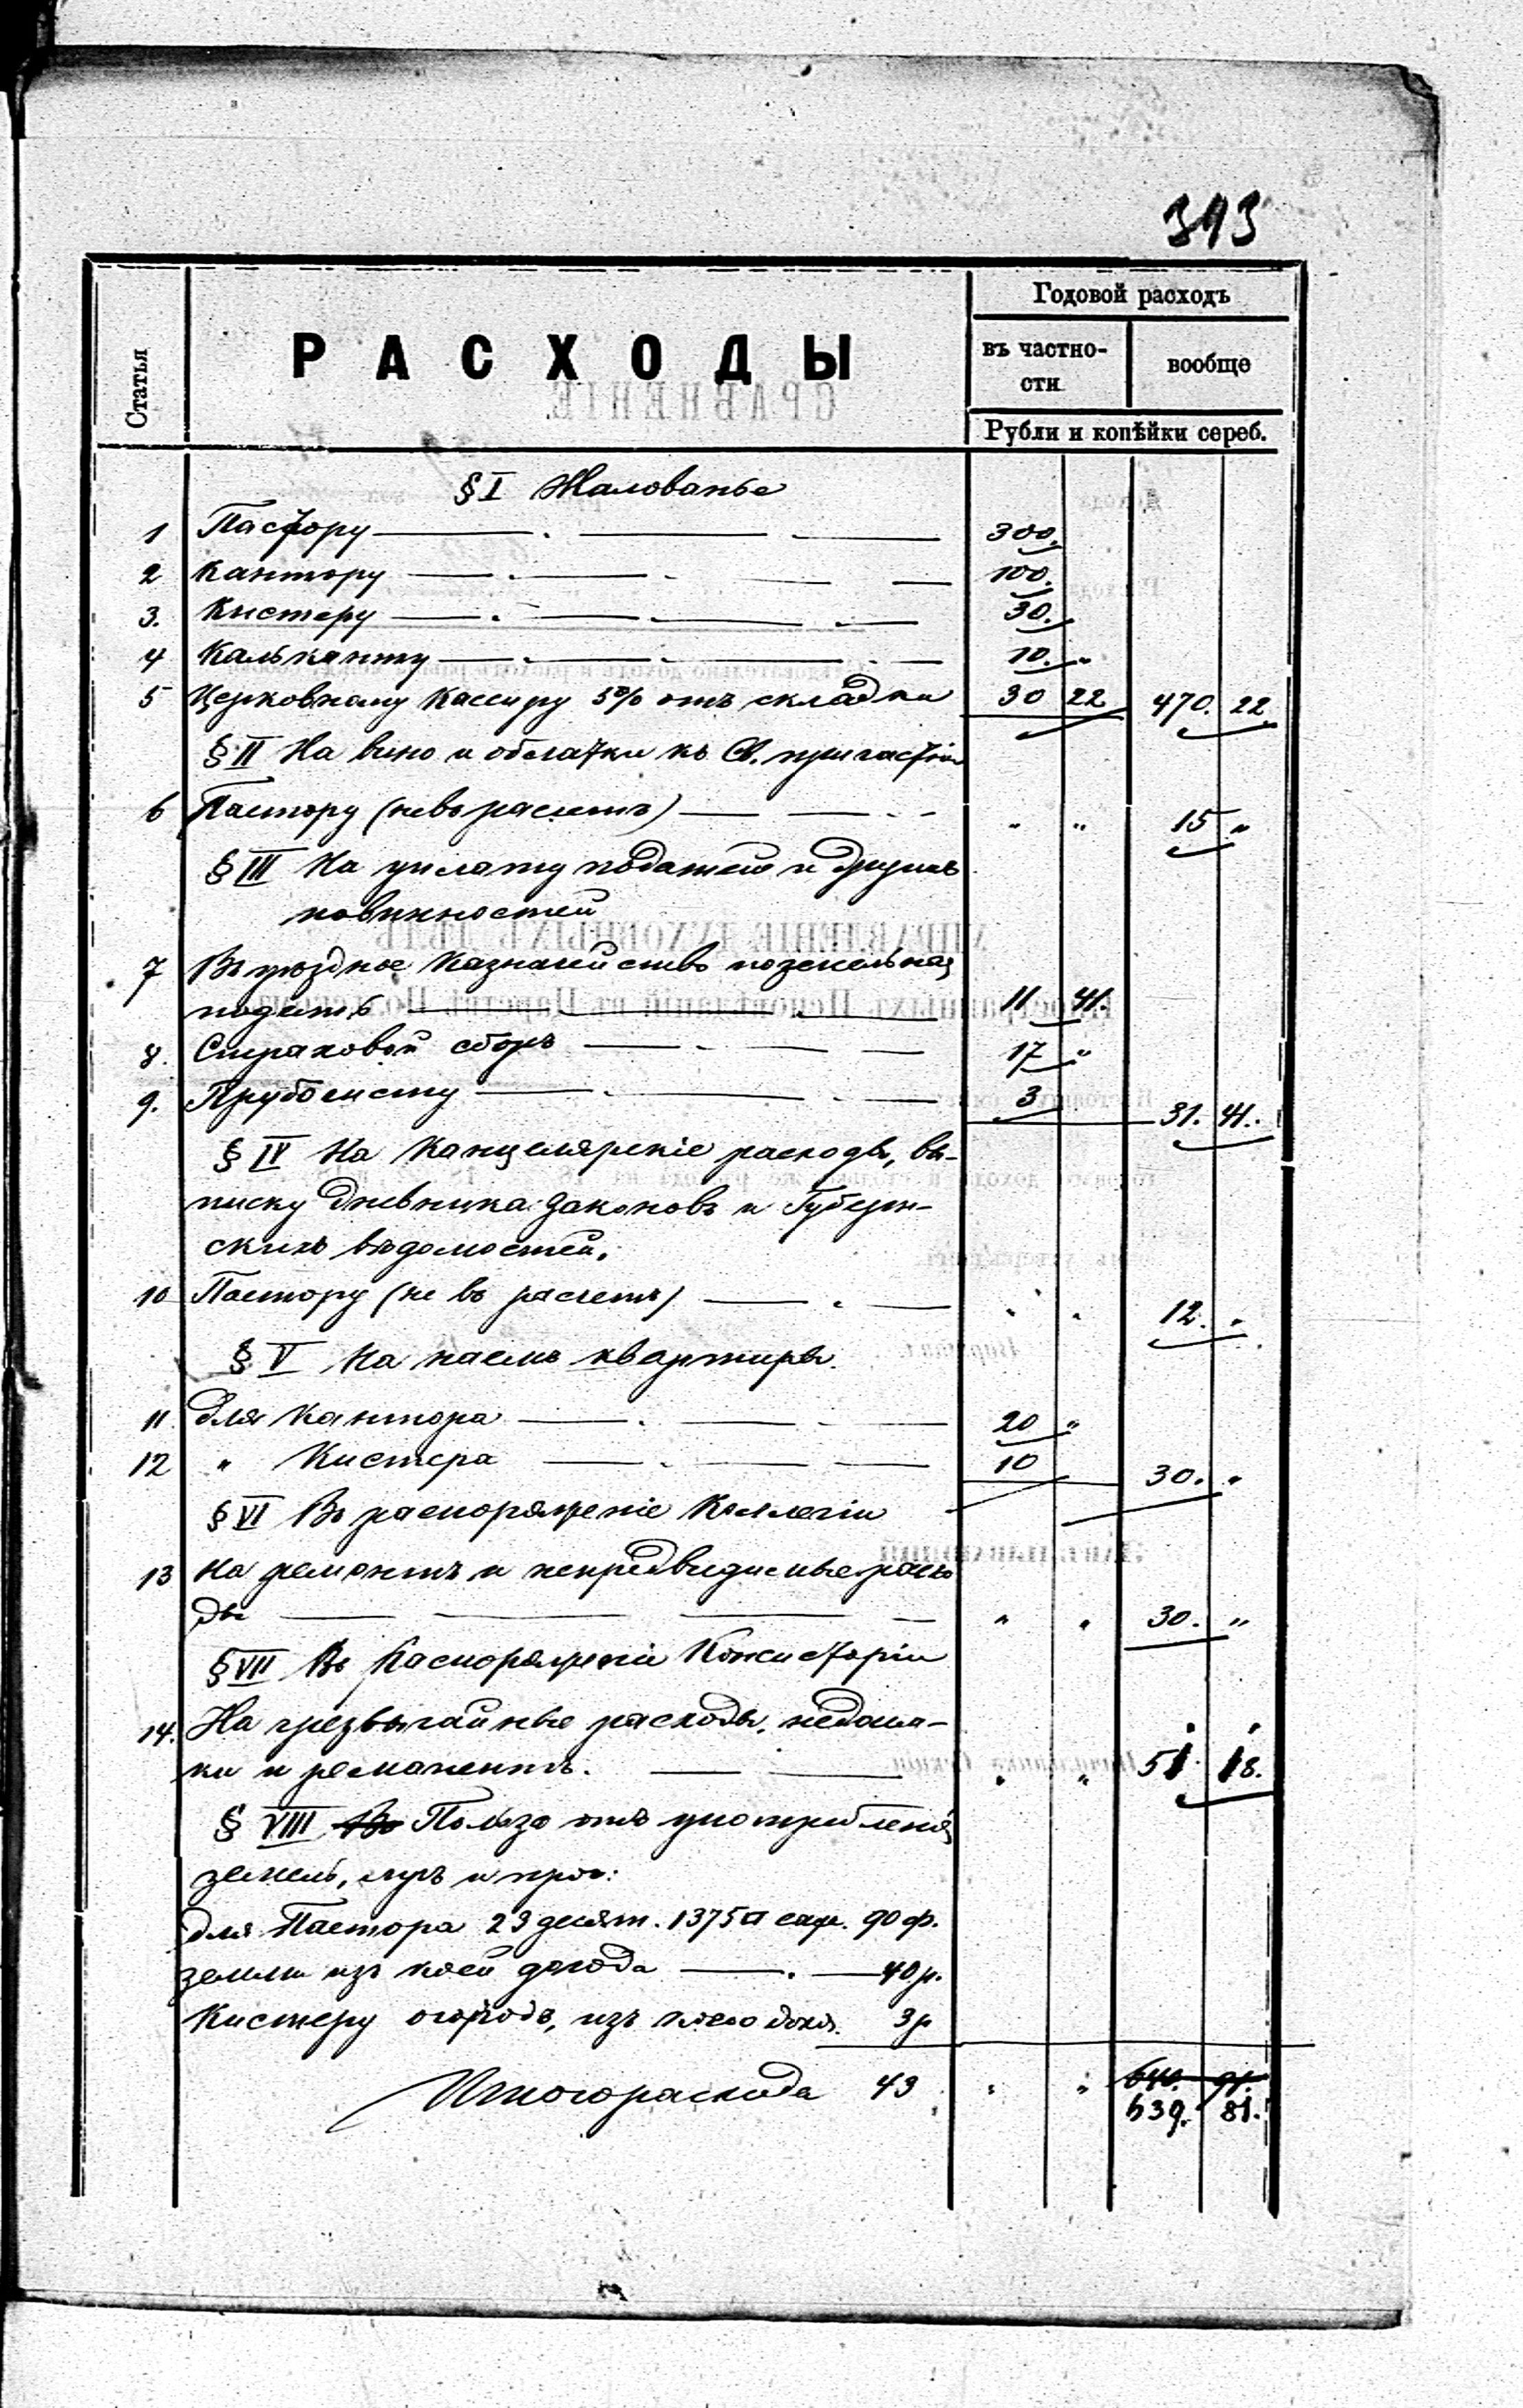 313
Статья
РАСХОДЫ
Годовой расходъ
въ частно-
сти
вообще
Рубли и копѣйки сереб.
§ I Жалованье
1 Пастору 300.
2 Кантору 100.
3. Кистеру 30.
4 Кальканту 10. "
5 Церковному Кассиру 5% отъ складки 30 22 470. 22.
§ II На вино и облатки къ Св. причастію
6 Пастору (не въ расчетъ) " " 15 "
§ III На уплату податей и другихъ
повинностей
7 Въ уѣздное Казначейство поземельная
подать 11 41.
8. Страховой сборъ 17 "
9. Трубочисту 3 31. 41.
§ IV На Канцелярскіе расходы, вы-
писку Дневника Законовъ и Губерн-
скихъ вѣдомостей.
10 Пастору (не въ расчетъ) " " 12. "
§ V На наемъ квартиры
11 для Кантора 20 "
12 " Кистера 10 30. "
§ VI Въ распоряженіе Коллегіи
13 на ремонтъ и непредвидимые расхо
ды " " 30. "
§ VII Въ Распоряженіи Консисторіи
14. На чрезвычайные расходы, недоим-
ки и ремонентъ. " " 51 18.
§ VIII Въ Польза отъ употребленія
земель, лугъ и проч:
для Пастора 23 десят. 1375 □ саж. 90 ф.
земли изъ коей дохода 40 р.
Кистеру огородъ, изъ коего дохд. 3 р
Итого расхода 43 " " 640. 91.
639. 81.